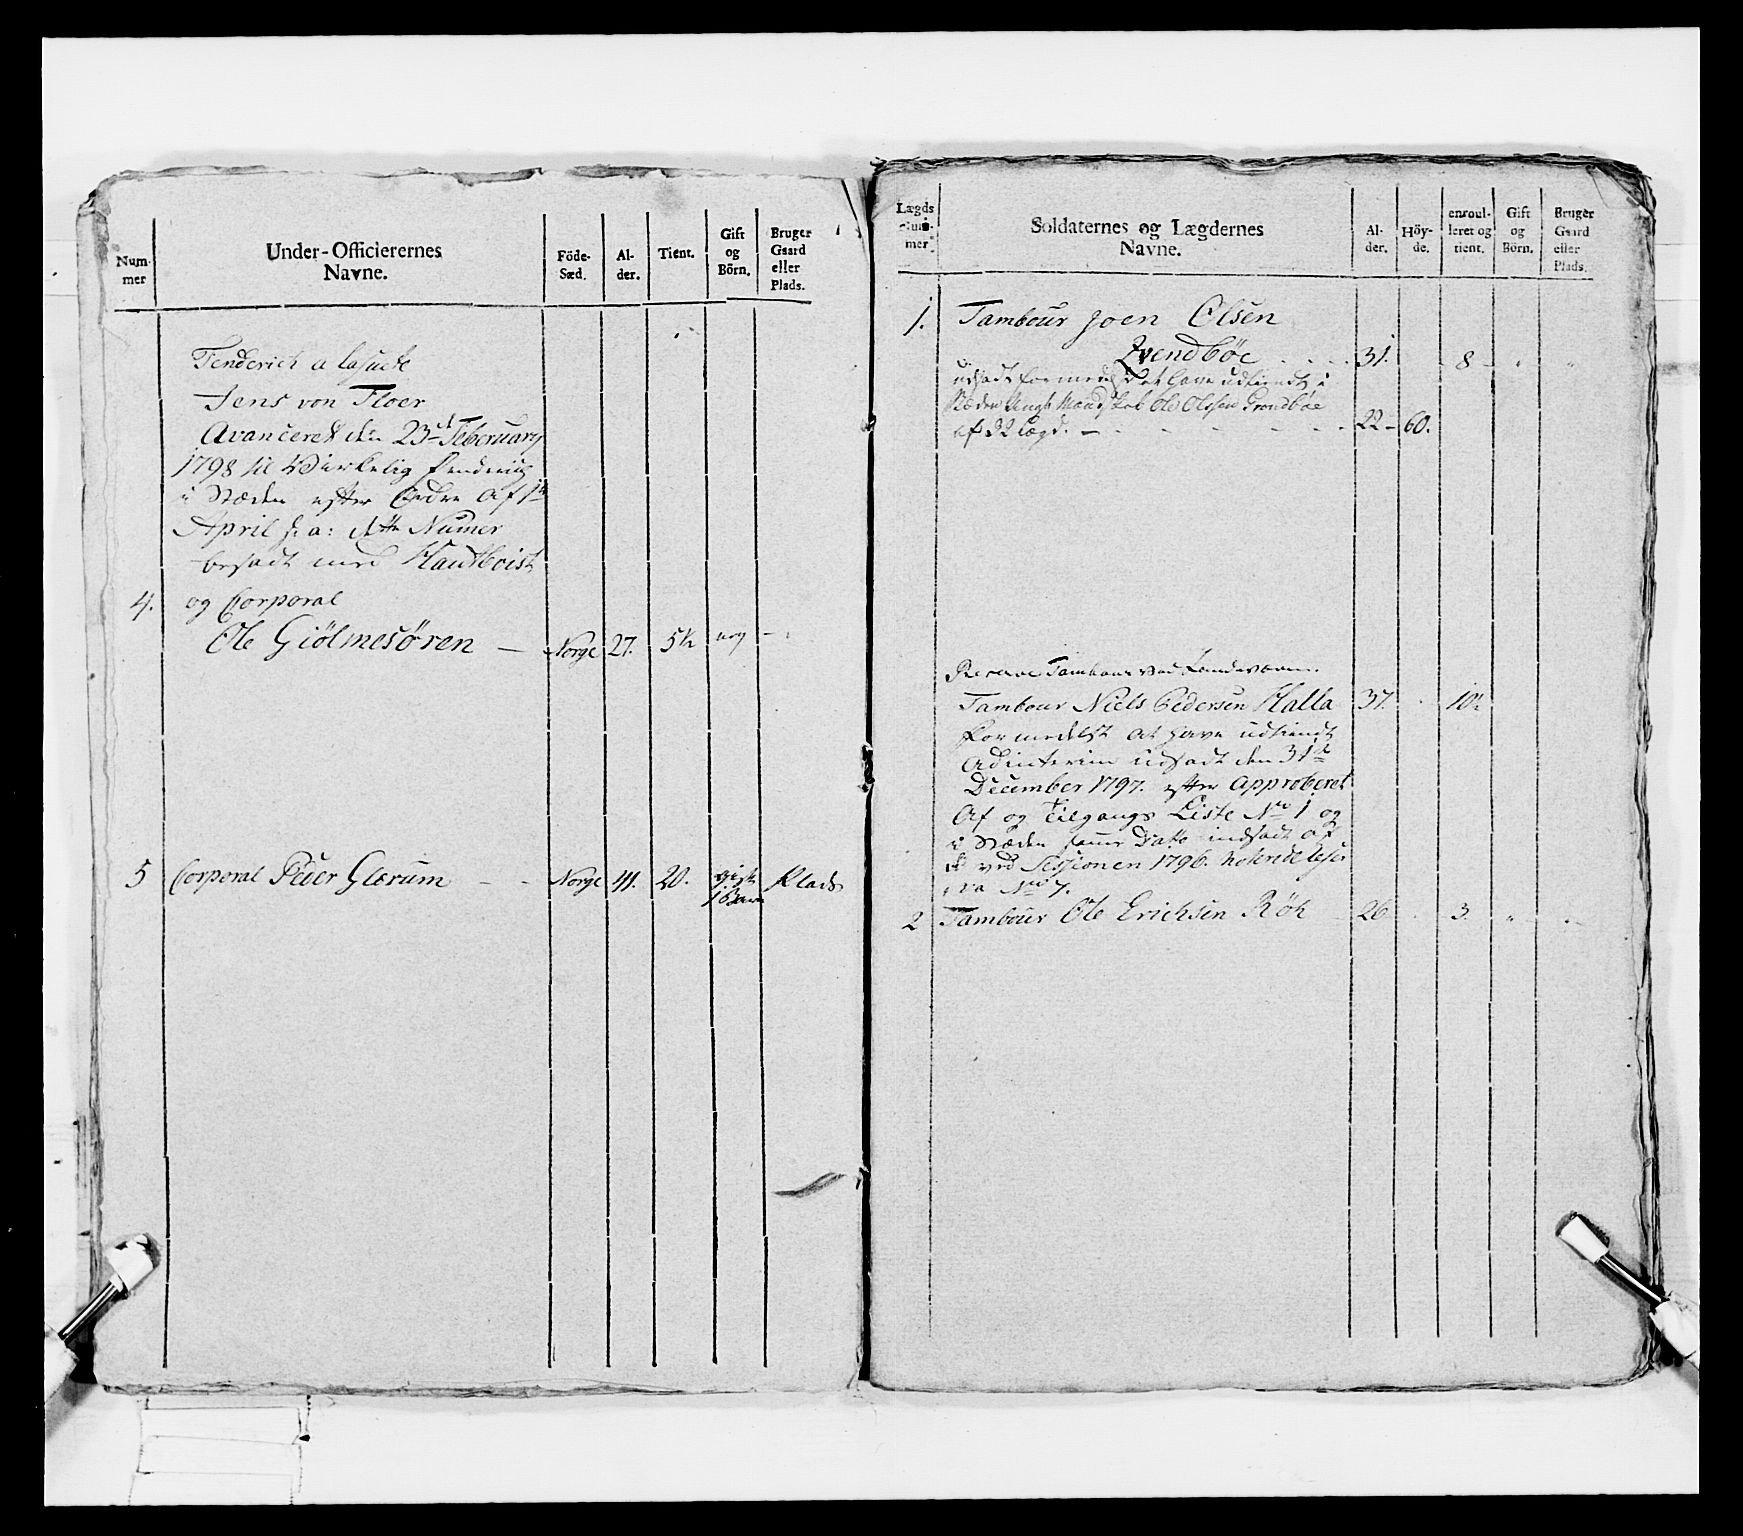 Num-
mer
Under-Officierernes
Navne.
Föde-
Sæd.
Al-
der.
Tient.
Gift
og
Börn.
Bruger
Gaard
eller
Plads.
Fenderich a la suite
Jens von Floer
Avanceret den 23d Februarÿ
1798 til Virkelig Fenderich
i Stæden efter Ordre af 1te
April s: a: dette Numer
besadt med Hautboist
4. og Corporal
Ole Giölmesøren — Norge 27. 5½ ung —
5 Corporal Peder Glærum — - Norge 41. 20. gift Plads
1 Barn
Lægds
Num-
mer.
Soldaternes og Lægdernes
Navne.
Al-
der.
Höy-
de.
enroul-
leret og
tient.
Gift
og
Börn.
Bruger
Gaard
eller
Plads.
1. Tambour Joen Olsen
31. 8
udsadt formedelst at have udtiendt i
Stæden Ole Olssen Grondbøe
af 32 Lægd. — 22 — 60.
Reserve Tambour ved Landeværnet.
Tambour Niels Pedersen Halla 37. 10½
formedelst at have udtiendt
Adinterim udsadt den 31te
December 1797. efter Approberet
Af og Tilgangs Liste No 1 og
i Stæden samme Dato indsadt af
ved Sessionen 1796.
No 7.
2 Tambour Ole Erichsen Röh 26 3.